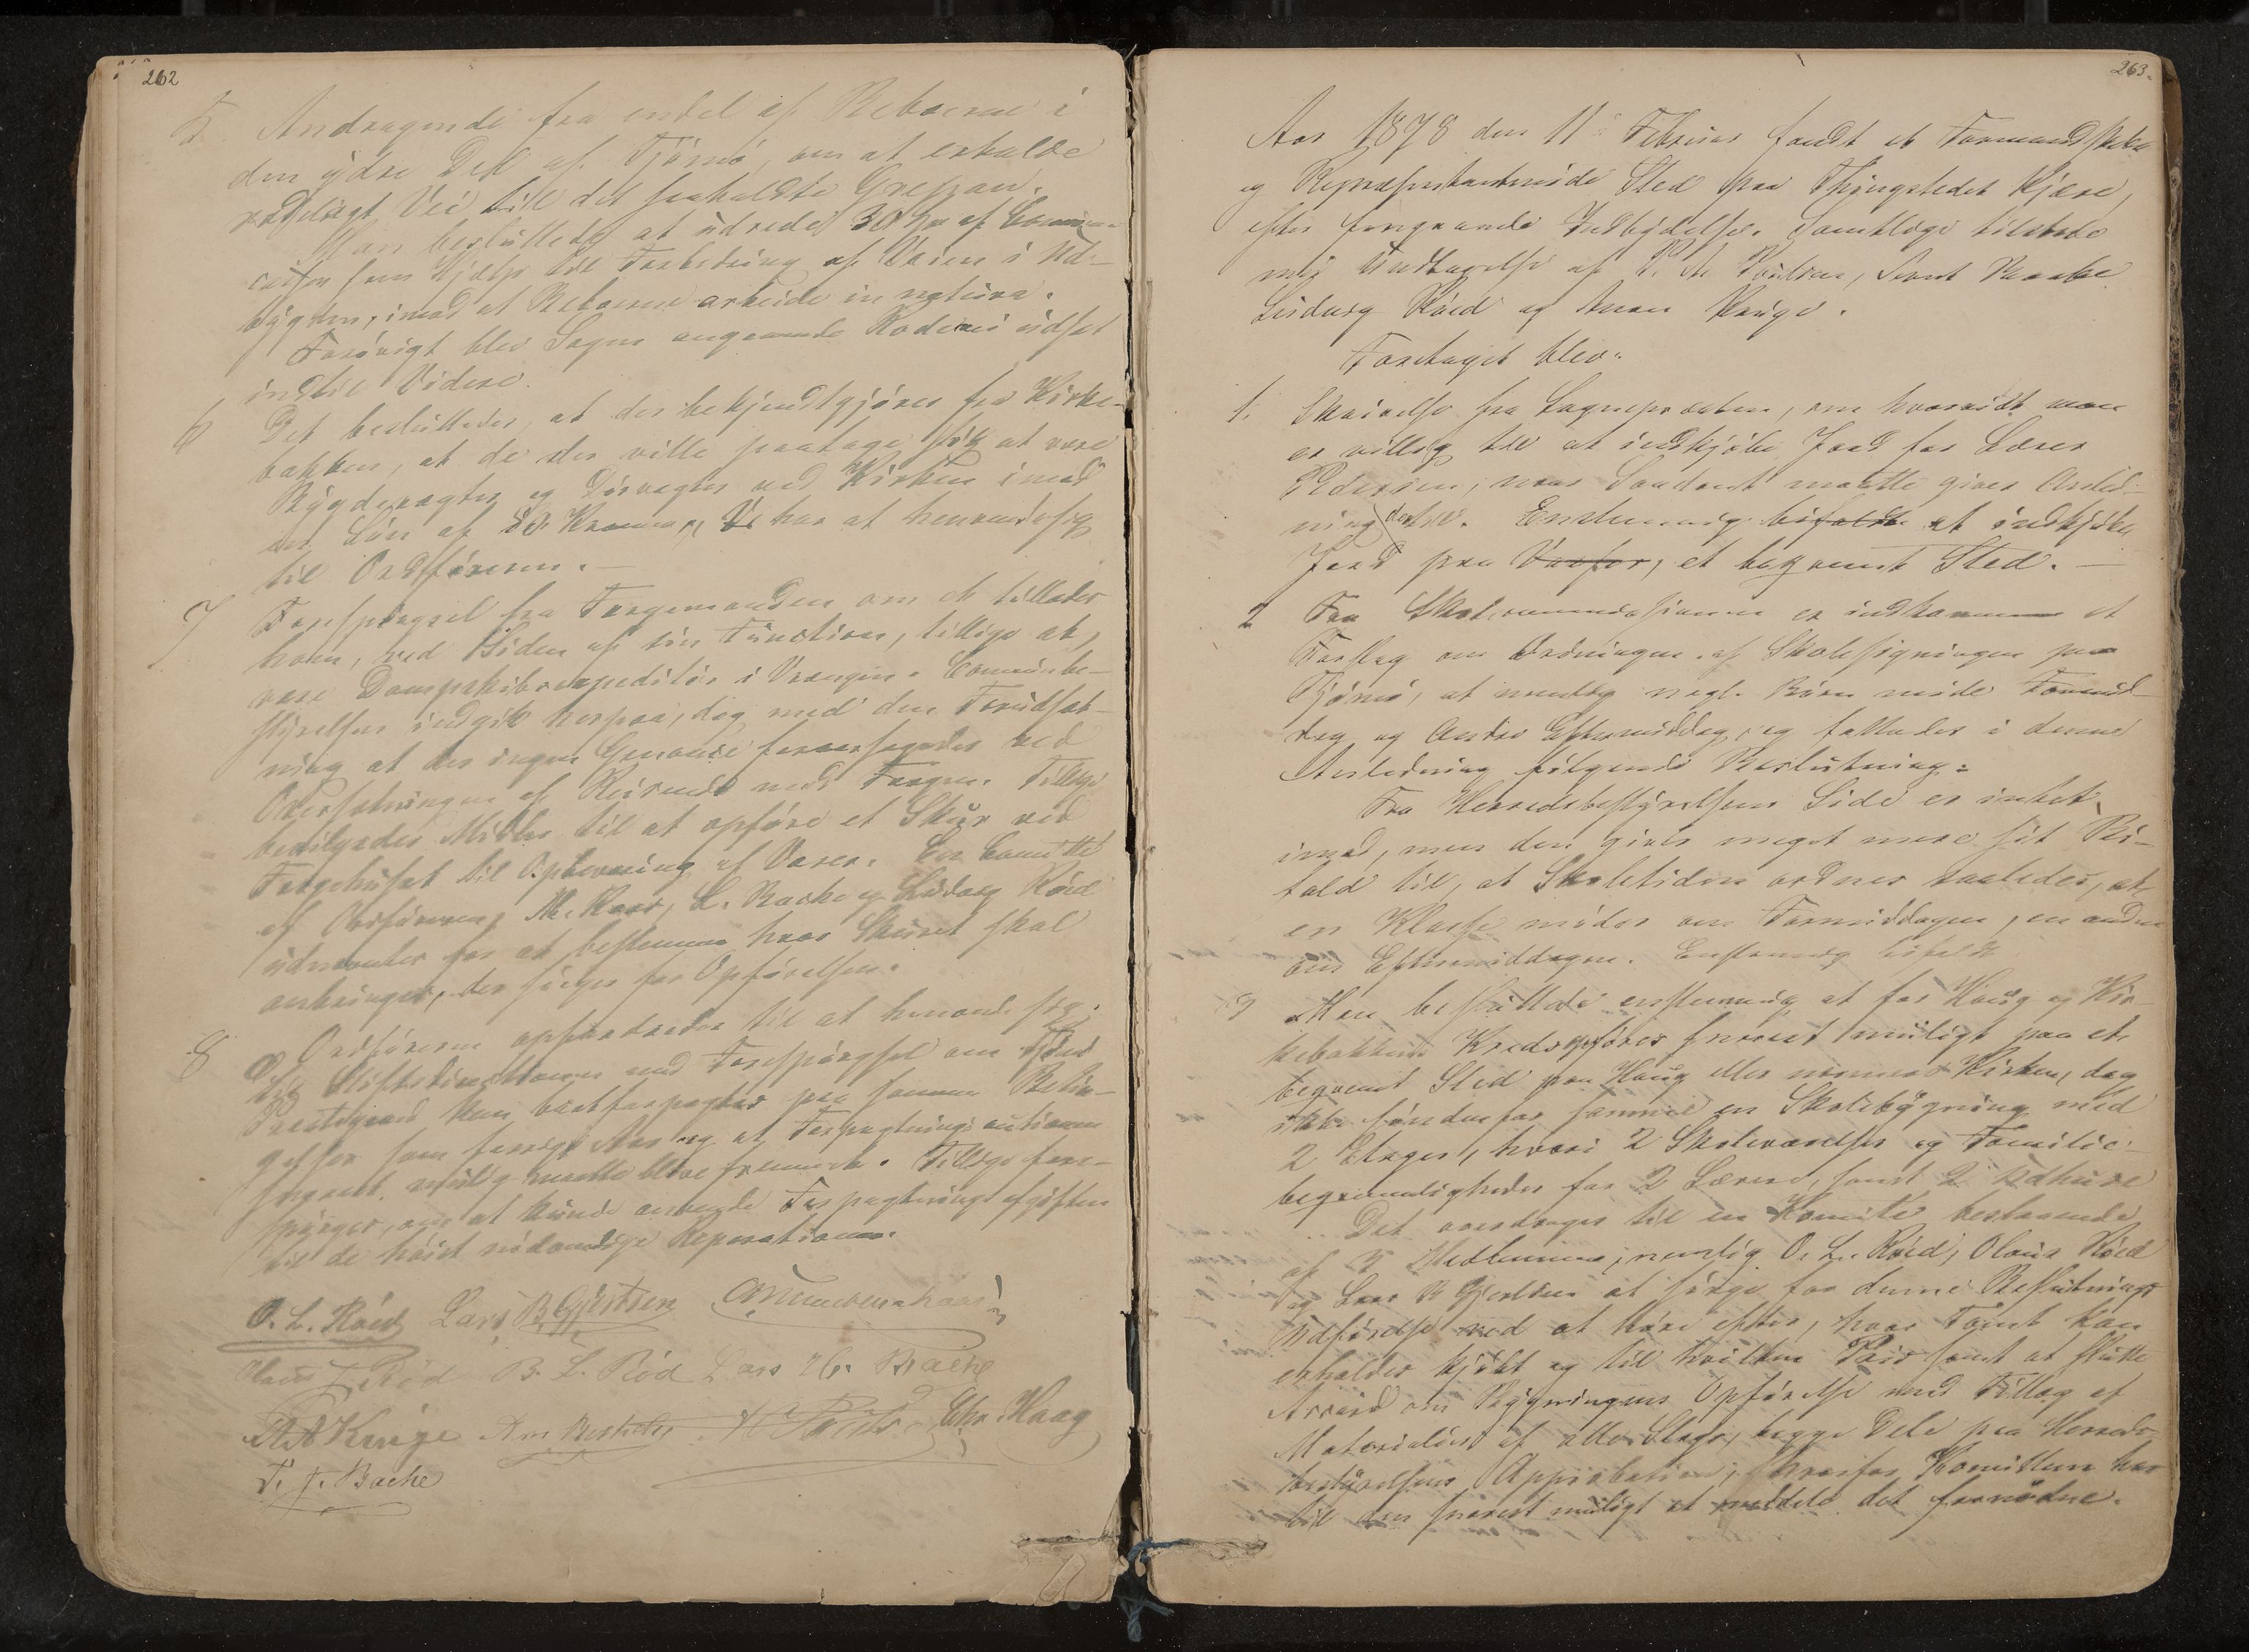 262
5 Andragende fra endel af Beboerne i
den ydre Del af Tjømø, om at erholde
rodelagt Vei til det saakaldte Grepan.
Man besluttede at udrede 30 Kr af Commune-
cassen som Hjælp til Forbedring af Veien i Ud-
bygden, imod at Beboerne arbeide in natura.
Forøvrigt blev Sagen angaaende Rodevei udsat
indtil Videre.
6 Det besluttedes, at der bekjendtgjøres fra Kirke-
bakken, at de der ville paatage sig at være
Bygdevægter og Dørvogter ved Kirken imod
en Løn af 20 Kroner, har at henvende sig
til Ordføreren. —
7 Forespørgsel fra Færgemanden om det tillades
ham, ved Siden af sin Function, tillige at
være Dampskibsexpeditør i Vrængen. Communebe-
styrelsen indgik herpaa, dog med den Forudsæt-
ning at der ingen Genance foraarsagedes ved
Oversætningen af Reisende med Færgen. Tillige
bevilgedes Midler til at opføre et Skur ved
Færgehuset til Opbevaring af Varer. En Comitte
af Ordføreren, M. Kaas, L. Backe og Ludvig Røed
udnævntes for at bestemme hvor Skuret skal
anbringes, der sørger for Opførelsen.
8 Ordføreren opfordredes til at henvende sig
til Stiftsdirectionen med Forespørgsel om Tjømø
Præstegaard kan bortforpagtes paa samme Betin-
gelser som forrige Aar og at Forpagtningsauctionen
snarest mulig maatte blive fremmet. Tillige fore-
spørges, om at kunde anvende Forpagtningsafgiften
til de høist nødvendige Reparationer.
O. L. Røed Lars B. Gjertsen A Mumchens Kaas
Olaus L. Röd B. L. Röd Lars Chr. Backe
A Kruge Chr. Haag
F. F. Backe
263.
Aar 1878 den 11 Februar fandt et Formandskabs
og Repræsentantmøde Sted paa Thingstedet Kjære,
efter foregaaende Indbydelse. Samtlige tilstede
med Undtagelse af Poulsen, samt Baake
Ludvig Røed og Kruge.
Foretaget blev:
1. Skrivelse fra Sognepræsten, om hvorvidt man
er villig til at indkjøbe Jord for Lærer
Pedersen, naar Saadant maatte gives Anled-
ning dertil. Enstemmig bifaldt at indkjøbe
Jord paa et beqvemt Sted. —
2 Fra Skolecommissionen er indkommet et
Forslag om Ordningen af Skolesøgningen paa
Tjømø, at nemlig nogle Børn møde Formid-
dag og Andre Eftermiddag, og fattedes i denne
Anledning følgende Beslutning:
Fra Herredsbestyrelsens Side er intet
imod, men den giver meget mere sit Bi-
fald til, at Skoletiden ordnes saaledes, at
en Klasse møder om Formiddagen, en anden
om Eftermiddagen. Enstemmig bifaldt
3 Man besluttede enstemmig at for Haug og Kir-
kebakkens Kreds opføres snarest muligt paa et
beqvemt Sted paa Haug eller nærmere Kirken, dog
ikke søndenfor samme en Skolebygning med
2 Etager, hvori 2 Skoleværelser og Familie-
beqvemmeligheder for 2 Lærere, samt 2 Udhuse
Det overdrages til en Komité bestaaende
af 3 Medlemmer, nemlig O. L. Røed, Olaus Røed
og Lars B Gjertsen at sørge for denne Beslutnings
Udførelse ved at høre efter, hvor Tomt kan
erholdes kjøbt og til hvilken Pris samt at slutte
Accord om Bygningens Opførelse med Tillæg af
Materialier af alle Slags, begge Dele paa Herreds-
bestyrelsens Approbation, hvorfor Komitteen har
til den snarest muligt at meddele det fornødne.